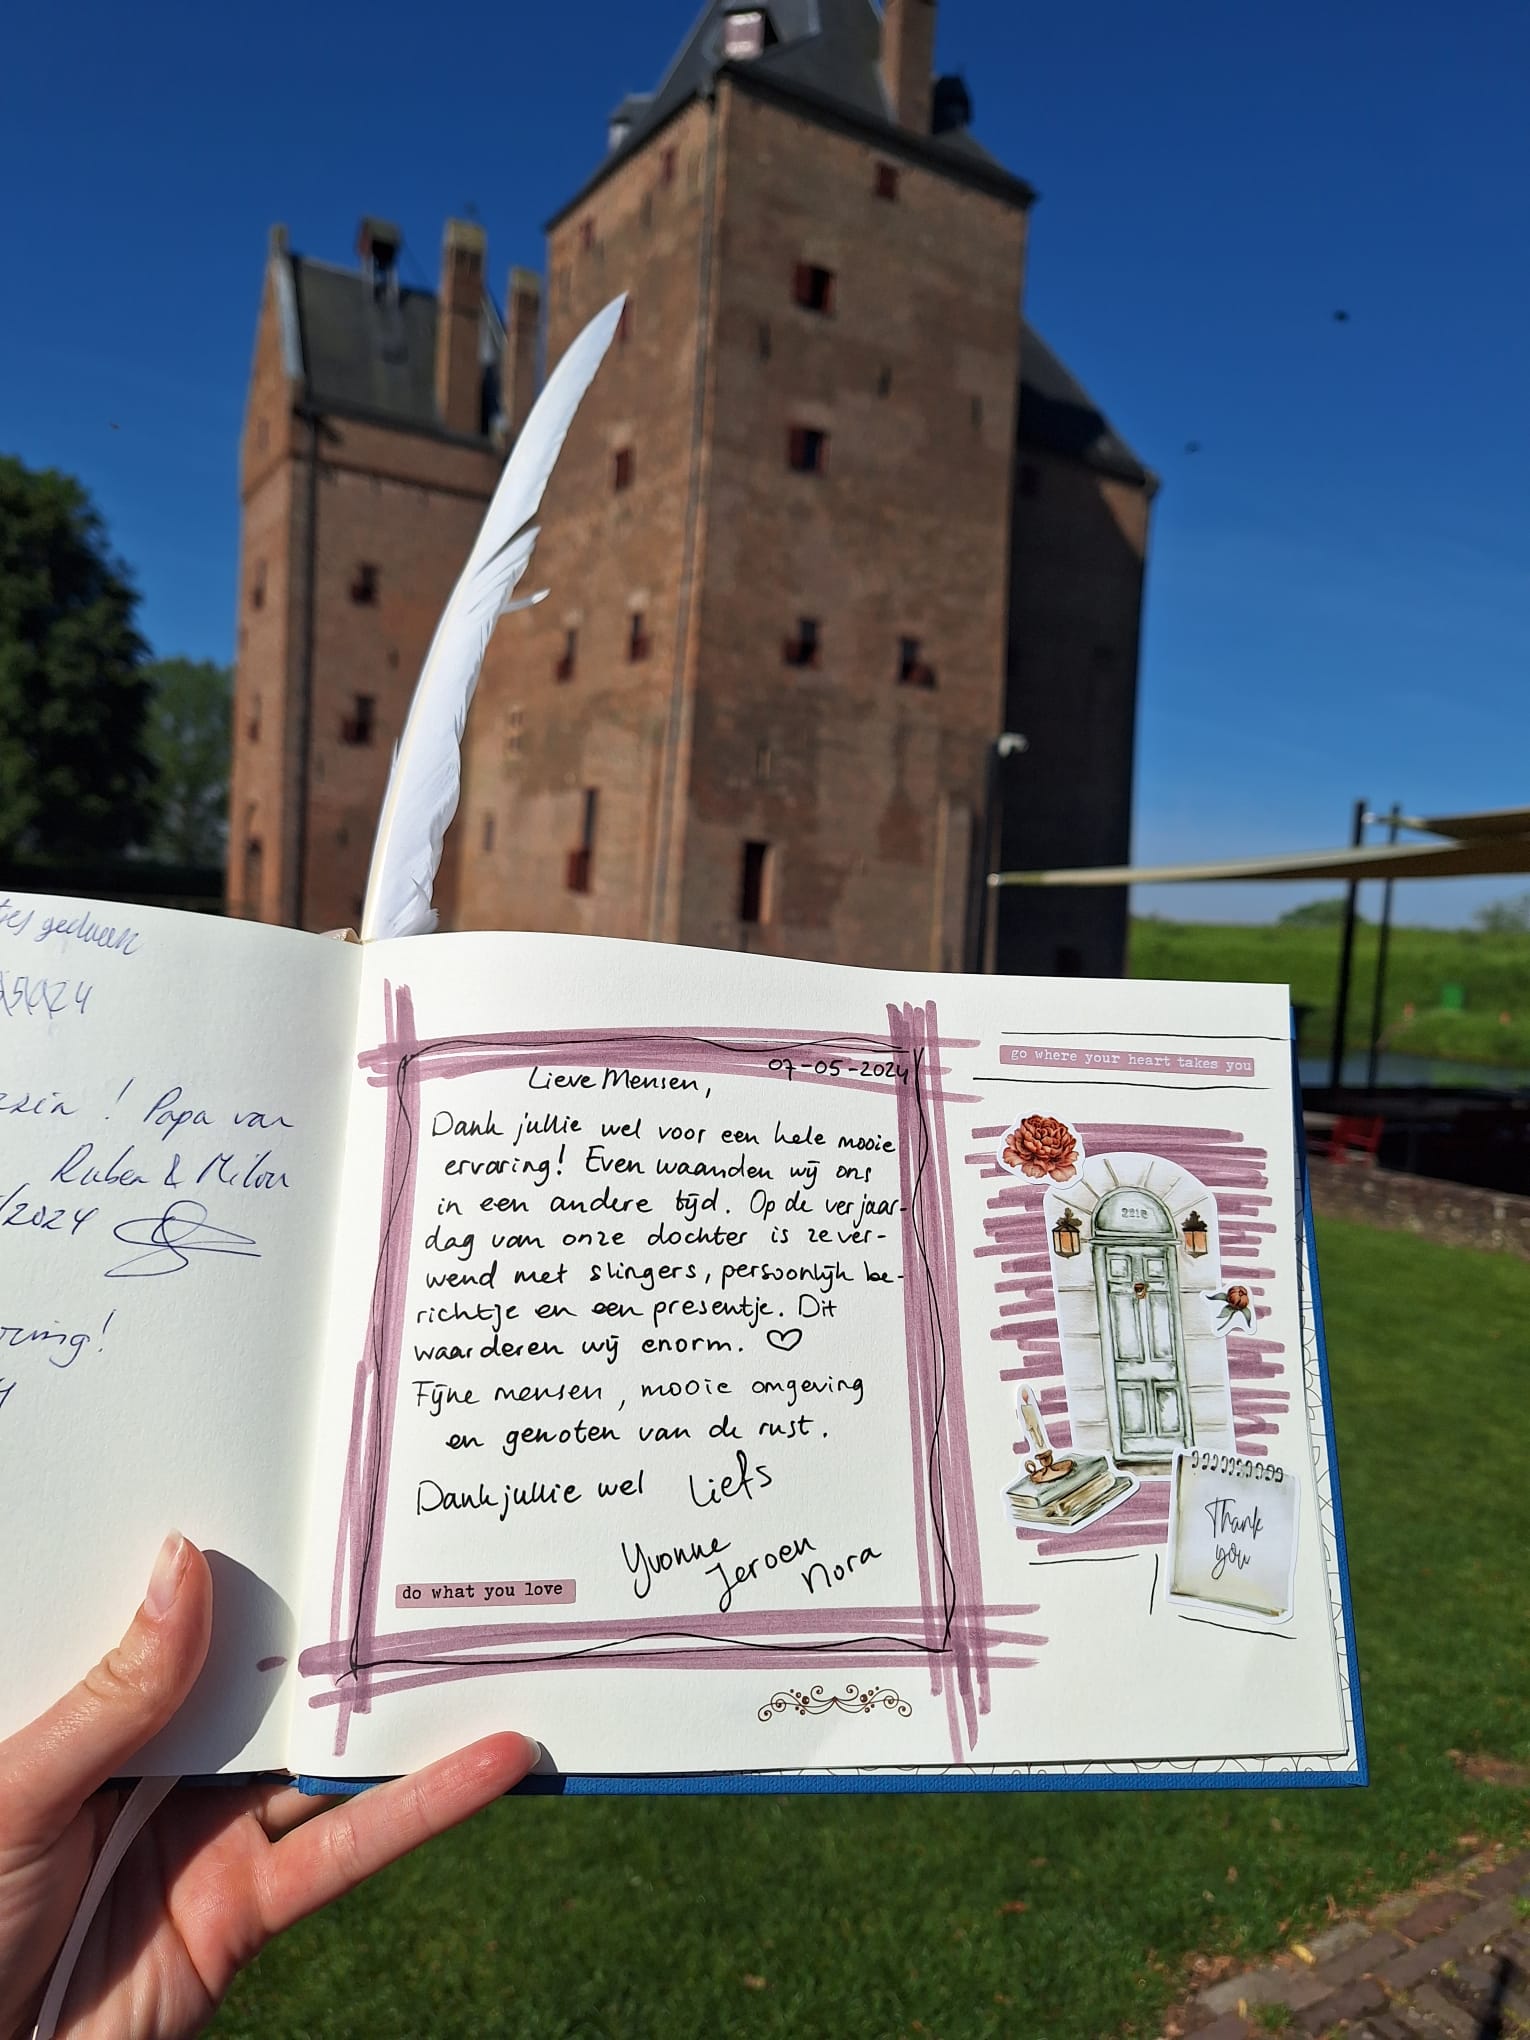 gedaan
Papa van
Ruben & Milou
/2024
07-05-2024
Lieve Mensen,
Dank jullie wel voor een hele mooie
ervaring! Even waanden wij ons
in een andere tijd. Op de verjaar-
dag van onze dochter is ze ver-
wend met slingers, persoonlijk be-
richtje en een presentje. Dit
waarderen wij enorm. ♡
Fijne mensen, mooie omgeving
en genoten van de rust.
Dank jullie wel Liefs
Yvonne
Jeroen
Nora
do what you love
go where your heart takes you
2216
Thank
you